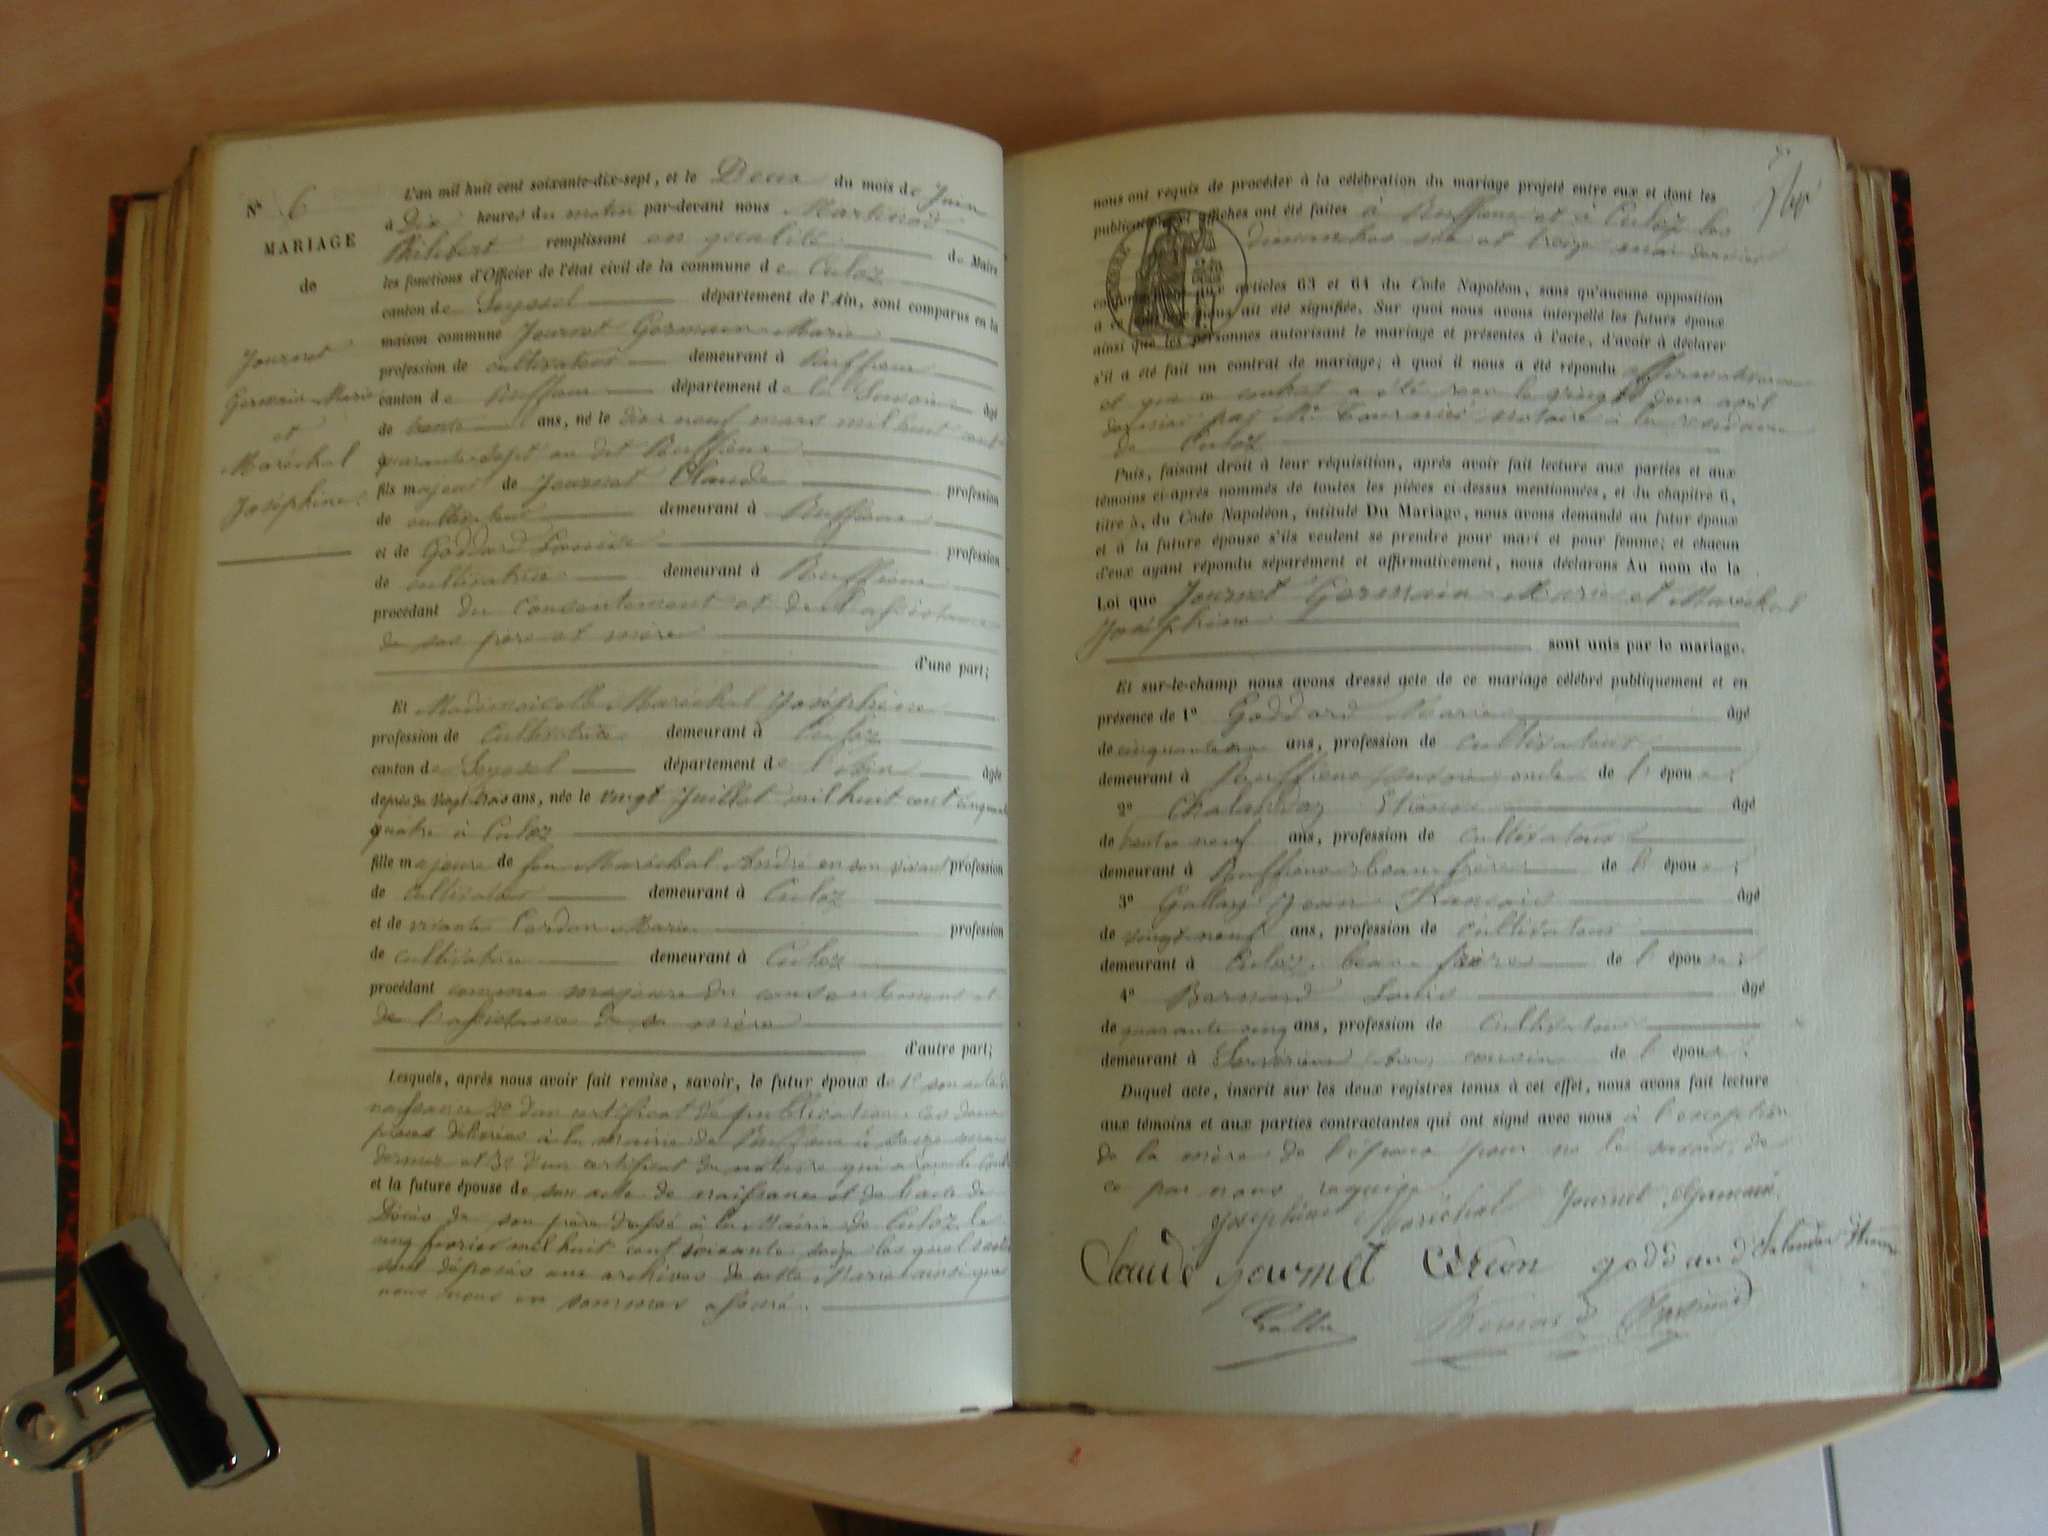 N° 6
MARIAGE
de
Journet
Germain Marie
et
Maréchal
Joséphine.
L'an mil huit cent soixante-dix-sept, et le Deux du mois de Juin
à Dix heures du matin par-devant nous Martinod
Philibert remplissant en qualité de Maire
les fonctions d'Officier de l'état civil de la commune de Culoz
canton de Seyssel département de l'Ain, sont comparus en la
maison commune Journet Germain Marie
profession de cultivateur demeurant à Ruffieux
canton de Ruffieux département de la Savoie âgé
de trente ans, né le dix neuf mars mil huit cent
quarante-sept au dit Ruffieux
fils majeur de Journet Claude profession
de cultivateur demeurant à Ruffieux
et de Goddard profession
de cultivatrice demeurant à Ruffieux
procédant du consentement et de l'assistance
de ses père et mère
d'une part;
Et Mademoiselle Maréchal Joséphine
profession de Cultivatrice demeurant à Culoz
canton de Seyssel département de l'Ain âgée
de vingt-trois ans, née le vingt Juillet mil huit cent cinquante
quatre à Culoz
fille majeure de feu Maréchal André en son vivant profession
de cultivateur demeurant à Culoz
et de vivante Cardon Marie profession
de cultivatrice demeurant à Culoz
procédant comme majeure du consentement et
de l'assistance de sa mère
d'autre part;
Lesquels, après nous avoir fait remise, savoir, le futur époux de 1° son acte de
naissance 2° d'un certificat de publication ces deux
pièces délivrées à la mairie de Ruffieux le
dernier et 3° d'un certificat du notaire qui a
et la future épouse de son acte de naissance et de l'acte de
Décès de son père dressé à la Mairie de Culoz le
cinq février mil huit cent soixante seize les quels actes
sont déposés aux archives de cette Mairie ainsi que
nous nous en sommes assuré.
nous ont requis de procéder à la célébration du mariage projeté entre eux et dont les
publications et affiches ont été faites à Ruffieux et à Culoz les
dimanches six et treize mai dernier
conformément aux articles 63 et 64 du Code Napoléon, sans qu'aucune opposition
à ce mariage nous ait été signifiée. Sur quoi nous avons interpellé les futurs époux
ainsi que les personnes autorisant le mariage et présentes à l'acte, d'avoir à déclarer
s'il a été fait un contrat de mariage; à quoi il nous a été répondu affirmativement
et que ce contrat a été reçu le vingt deux avril
dernier par Me notaire à la résidence
de Culoz
Puis, faisant droit à leur réquisition, après avoir fait lecture aux parties et aux
témoins ci-après nommés de toutes les pièces ci-dessus mentionnées, et du chapitre 6,
titre 5, du Code Napoléon, intitulé Du Mariage, nous avons demandé au futur époux
et à la future épouse s'ils veulent se prendre pour mari et pour femme; et chacun
d'eux ayant répondu séparément et affirmativement, nous déclarons Au nom de la
Loi que Journet Germain Marie et Maréchal
Joséphine
sont unis par le mariage.
Et sur-le-champ nous avons dressé acte de ce mariage célébré publiquement et en
présence de 1° Goddard âgé
de ans, profession de cultivateur
demeurant à Ruffieux Savoie oncle de l'époux;
2° Chalandaz Etienne âgé
de trente neuf ans, profession de cultivateur
demeurant à Ruffieux beau frère de l'époux;
3° Gallay Jean François âgé
de vingt neuf ans, profession de cultivateur
demeurant à Culoz, beau frère de l'épouse;
4° Barnard Louis âgé
de quarante cinq ans, profession de cultivateur
demeurant à cousin de l'épouse.
Duquel acte, inscrit sur les deux registres tenus à cet effet, nous avons fait lecture
aux témoins et aux parties contractantes qui ont signé avec nous à l'exception
de la mère de l'épouse pour ne le savoir, de
ce par nous requise
Joséphine Maréchal Journet Germain
Claude journet goddard Chalandaz Etienne